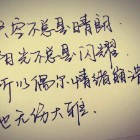 天空不总是晴朗
阳光不总是闪耀
所以偶尔情绪崩溃
也无伤大雅